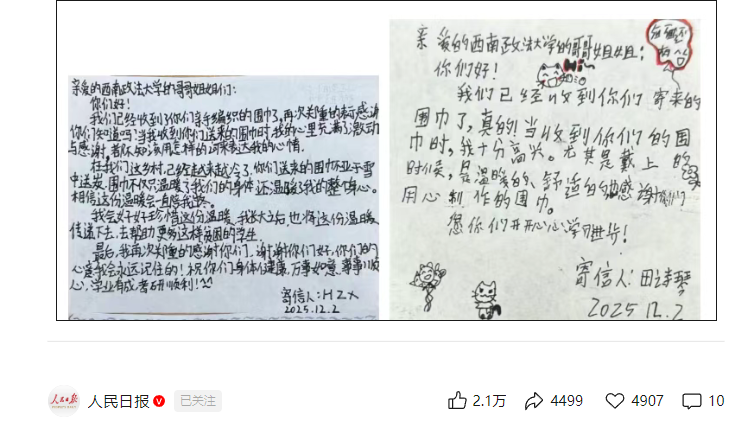 亲爱的西南政法大学的哥哥姐姐们：
你们好！
我们已经收到你们亲手编织的围巾了，再次郑重的表示感谢
你们知道吗？当我收到你们送来的围巾时，我的心里充满了激动
与感谢，都不知该用怎样的词来表达我的心情。
在我们这乡村，已经越来越冷了，你们送来的围巾亚于雪
中送炭，围巾不仅只温暖了我们的身体还温暖了我的整颗心。
相信这份温暖会一直陪我
我会好好珍惜这份温暖，我长大后，也将这份温暖
传递下去，去帮助更多这样贫困的学生
最后，我再次郑重的感谢你们，谢谢你们好，你们的
心意我会永远记住的！祝你们身体健康，万事如意，事事顺
心，学业有成，考研顺利！
寄信人：HZX
2025.12.2
亲爱的西南政法大学的哥哥姐姐：
你们好！
Hi~
我们已经收到你们寄来的
围巾了，真的！当收到你们的围
巾时，我十分高兴。尤其是戴上的
时候，是温暖的、舒适的 感谢你们
用心制作的围巾。
愿你们开开心心，学习进步！
寄信人：田诗琴
2025 12.2
人民日报
已关注
2.1万
4499
4907
10